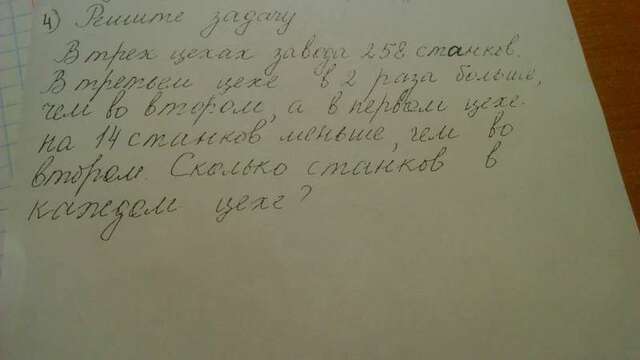 4) Решите задачу
В трех цехах завода 258 станков.
В третьем цехе в 2 раза больше,
чем во втором, а в первом цехе
на 14 станков меньше, чем во
втором. Сколько станков в
каждом цехе?